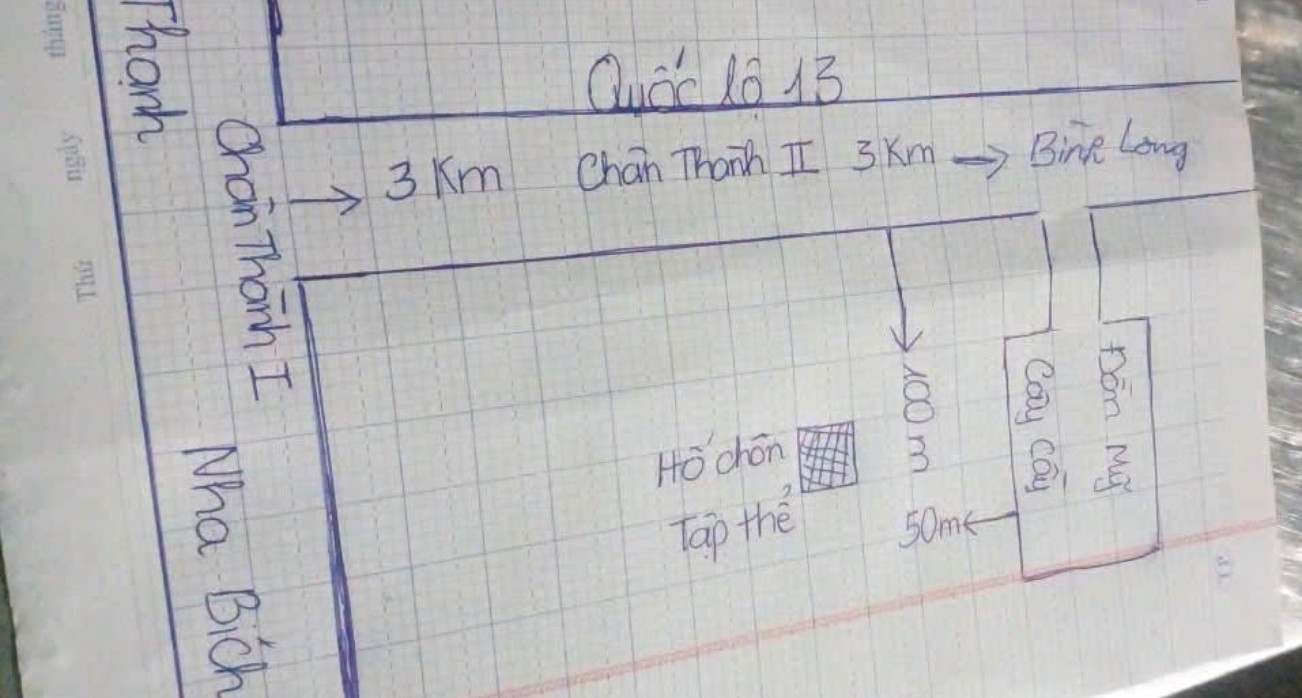 tháng
ngày
Thứ
Thạnh
Quốc lộ 13
Chơn Thành I
3 Km
Chân Thành II 3 Km → Bình Long
Nha Bích
100 m
Cây Cầy
Đồn Mỹ
Hố chôn
Tập thể
50m